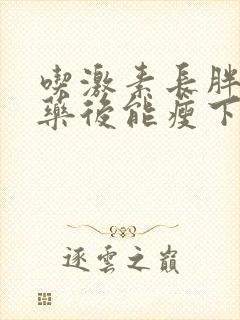 喫激素長胖
藥後能瘦下
逐雲之巔